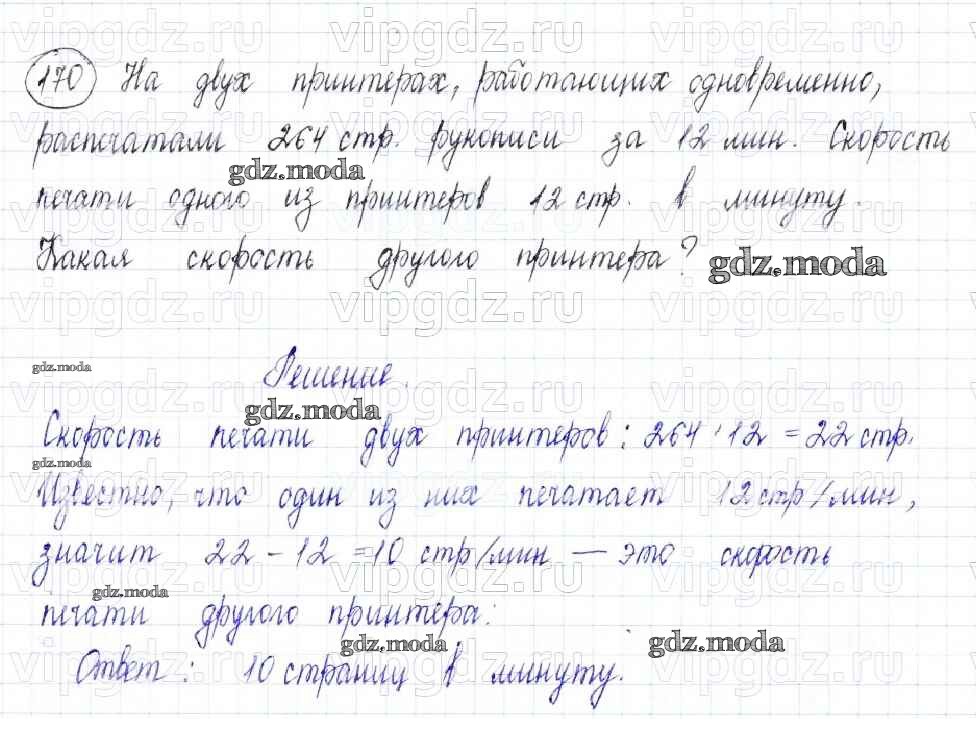 170 На двух принтерах, работающих одновременно,
распечатали 264 стр. рукописи за 12 мин. Скорость
gdz.moda
печати одного из принтеров 12 стр. в минуту.
Какая скорость другого принтера?
gdz.moda
vipgdz.ru vipgdz.ru vipgdz.ru
gdz.moda
Решение.
gdz.moda
Скорость печати двух принтеров: 264 : 12 = 22 стр.
gdz.moda
Известно, что один из них печатает 12 стр/мин,
значит 22 - 12 = 10 стр/мин — это скорость
gdz.moda
печати другого принтера.
gdz.moda gdz.moda
Ответ: 10 страниц в минуту.